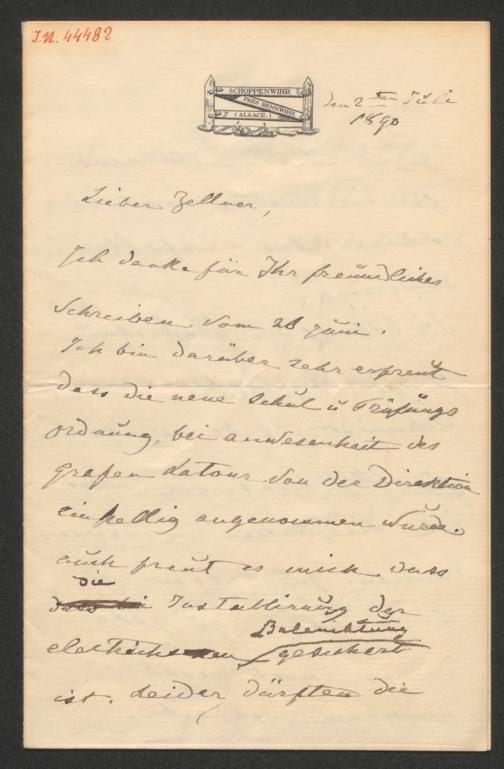 I.N. 44482
SCHOPPENWIHR
PRÈS BENNWIHR
(ALSACE.)
den 2ten Juli
1890
Lieber Zellner,
Ich danke für Ihr freundliches
Schreiben vom 28 Juni.
Ich bin darüber sehr erfreut
dass die neue Schul u Prüfungs
ordnung, bei anwesenheit des
Grafen Latour von der Direktion
einhellig angenommen wurde.
auch freut es mich dass
die
Installirung der
Beleuchtung
elektrischen gesichert
ist. Leider dürften die